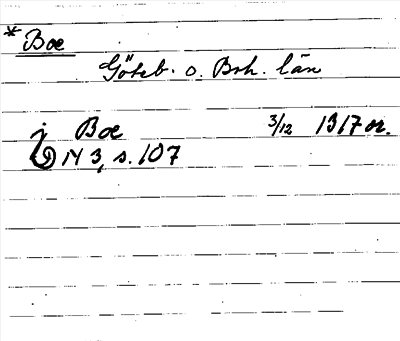 * Boe
Göteb. o. Boh. län
i Boe 3/12 1317 or.
DN 3, s. 107